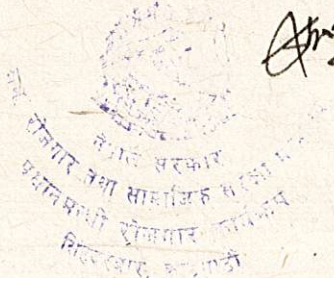 नेपाल सरकार
श्रम, रोजगार तथा सामाजिक सुरक्षा
प्रधानमन्त्री रोजगार कार्यक्रम
सिंहदरबार, काठमाडौं